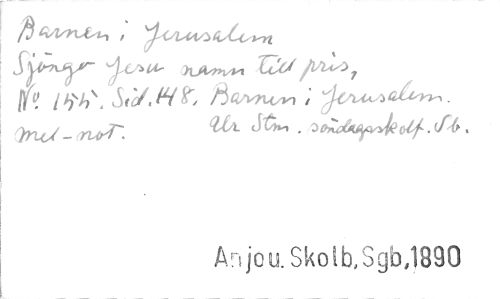 Barnen i Jerusalem
Sjöngo Jesu namn till pris,
No. 155. Sid. 148. Barnen i Jerusalem.
mel-not. Ur Stm. söndagsskolf. Sb.
Anjou. Skolb, Sgb, 1890